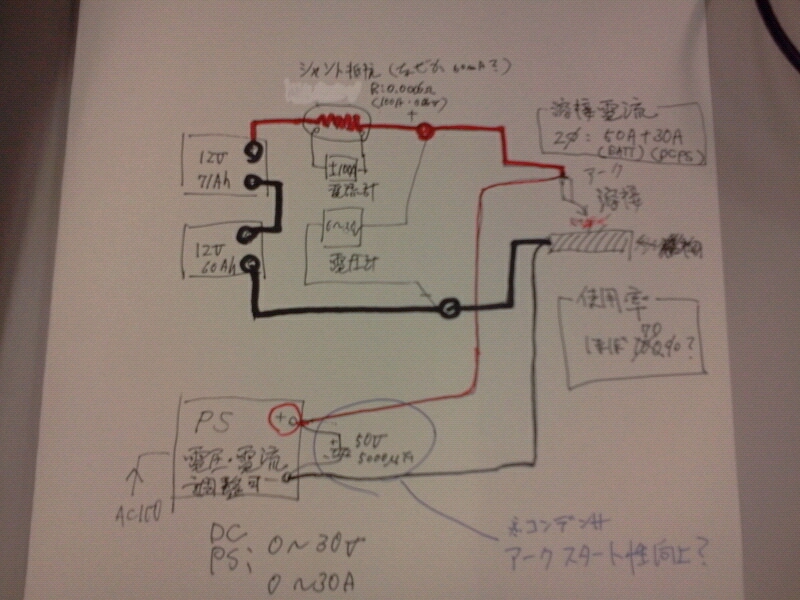 シャント抵抗 (なぜか 60mA?)
R:0.0006Ω
+
溶接電流
2φ: 50A+30A
(BATT) (DCPS)
アーク
溶接
12V
71Ah
±100A
電流計
0~30
電圧計
12V
60Ah
-
使用率
70
PS
+
電圧・電流
調整可
-
50V
5000μF
+
-
AC100
DC
PS: 0~30V
0~30A
※コンデンサ
アークスタート性向上?